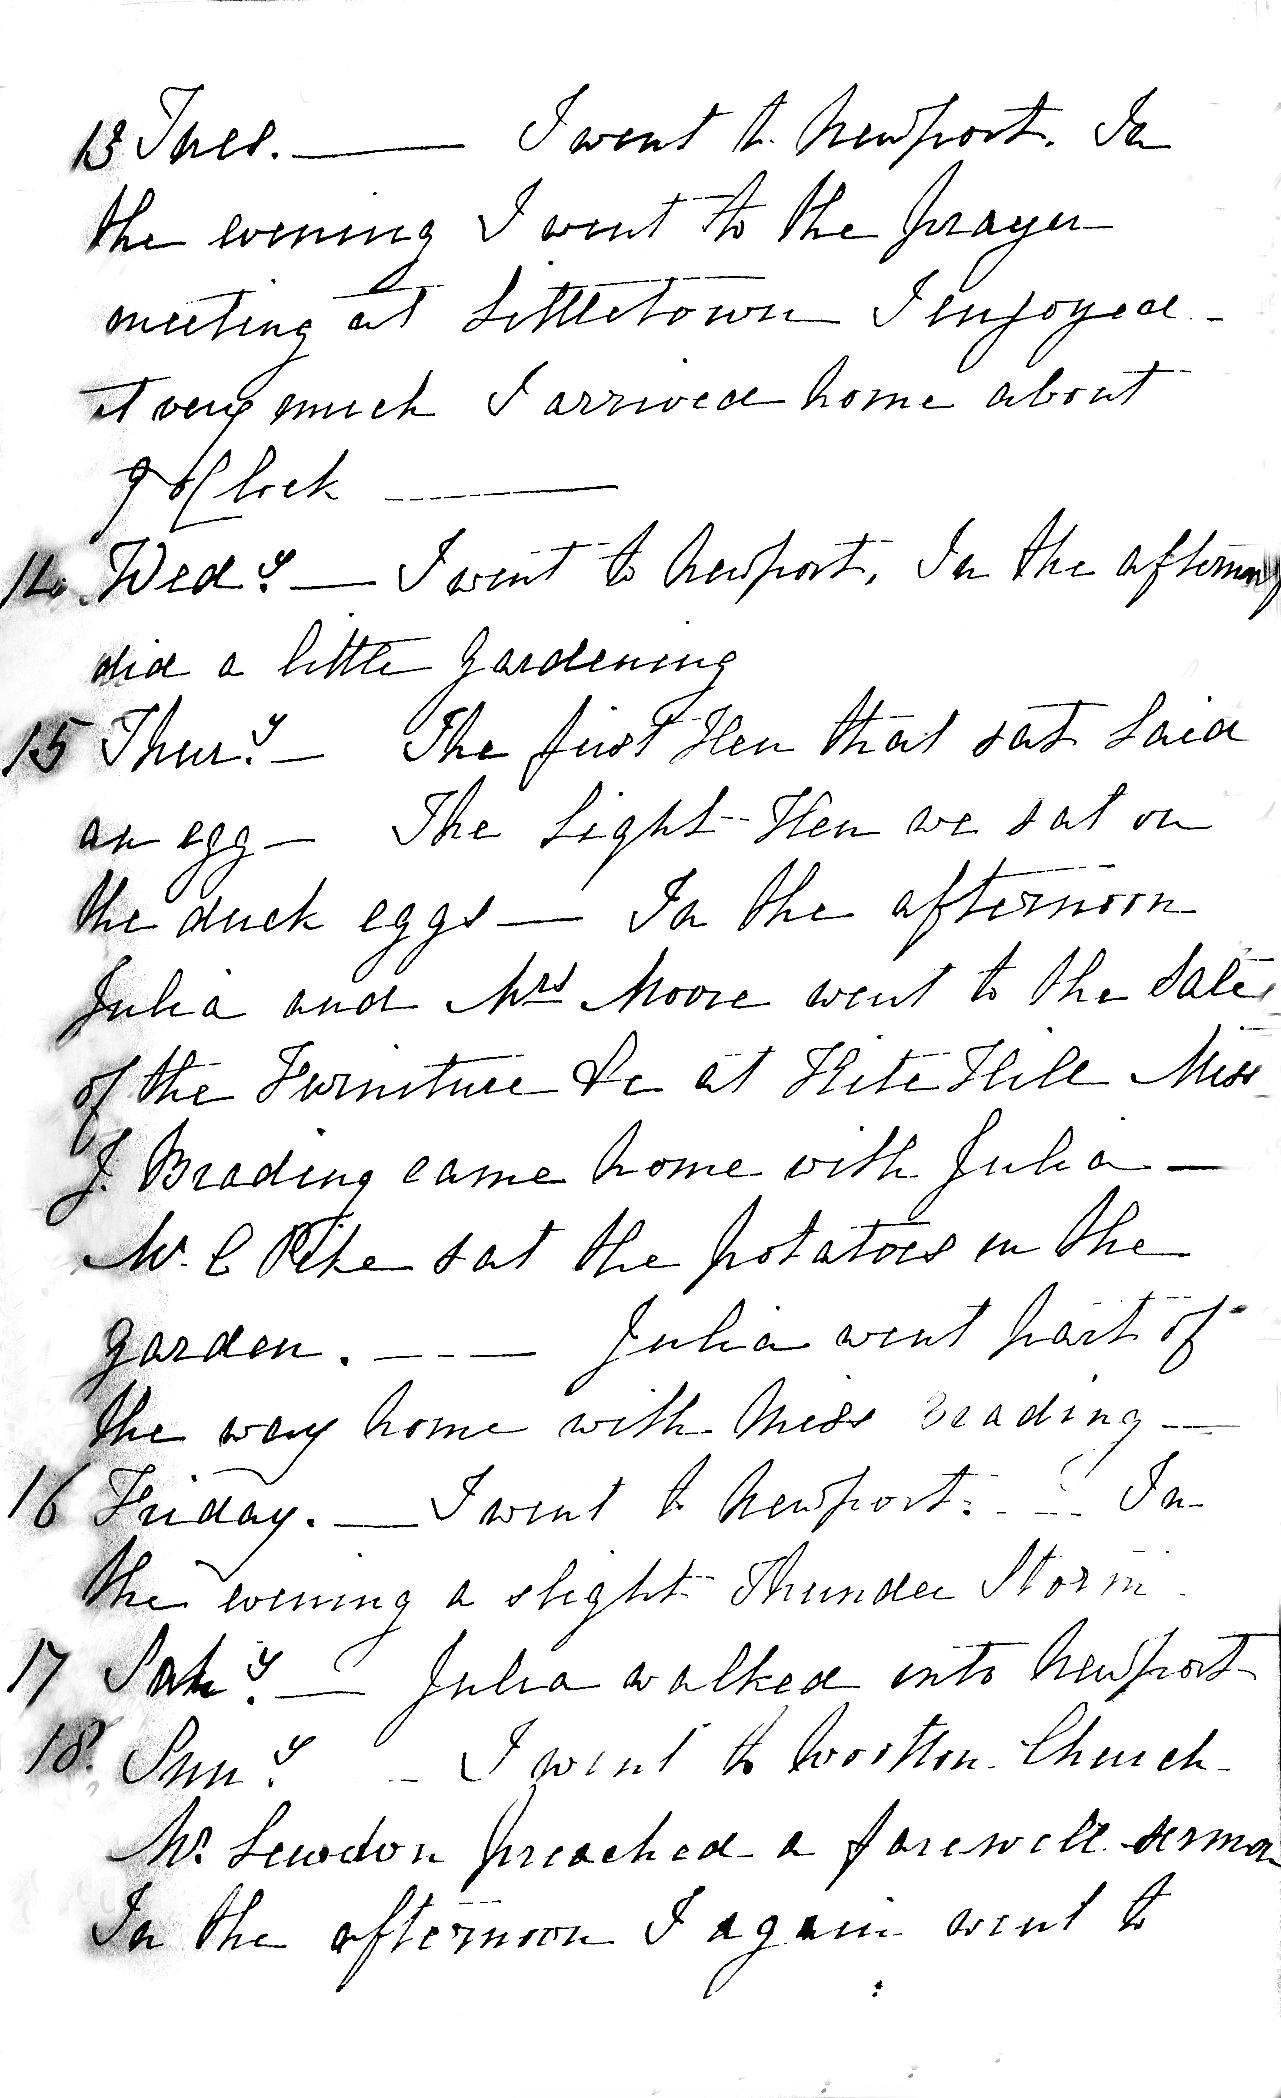 13 Tues. — I went to Newport. In
the evening I went to the prayer
meeting at Littletown I enjoyed
it very much I arrived home about
9 oClock —
14. Wedy. — I went to Newport. In the afternoon
did a little gardening
15 Thury. — The first Hen that sat laid
an egg — The Light Hen we sat on
the duck eggs — In the afternoon
Julia and Mrs Moore went to the Sale
of the Furniture &c at Kite Hill Miss
J. Brading came home with Julia —
Mr. C Pike sat the potatoes in the
garden. — — — Julia went part of
the way home with Miss Brading —
16 Friday. — I went to Newport. — In
the evening a slight Thunder Storm
17 Saty. — Julia walked into Newport
18. Suny. — I went to Wootton Church
Mr. preached a farewell sermon
In the afternoon I again went to